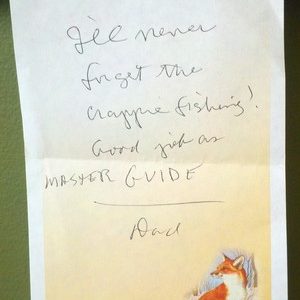 I'll never
forget the
crappie fishing!
Good job as
MASTER GUIDE
Dad